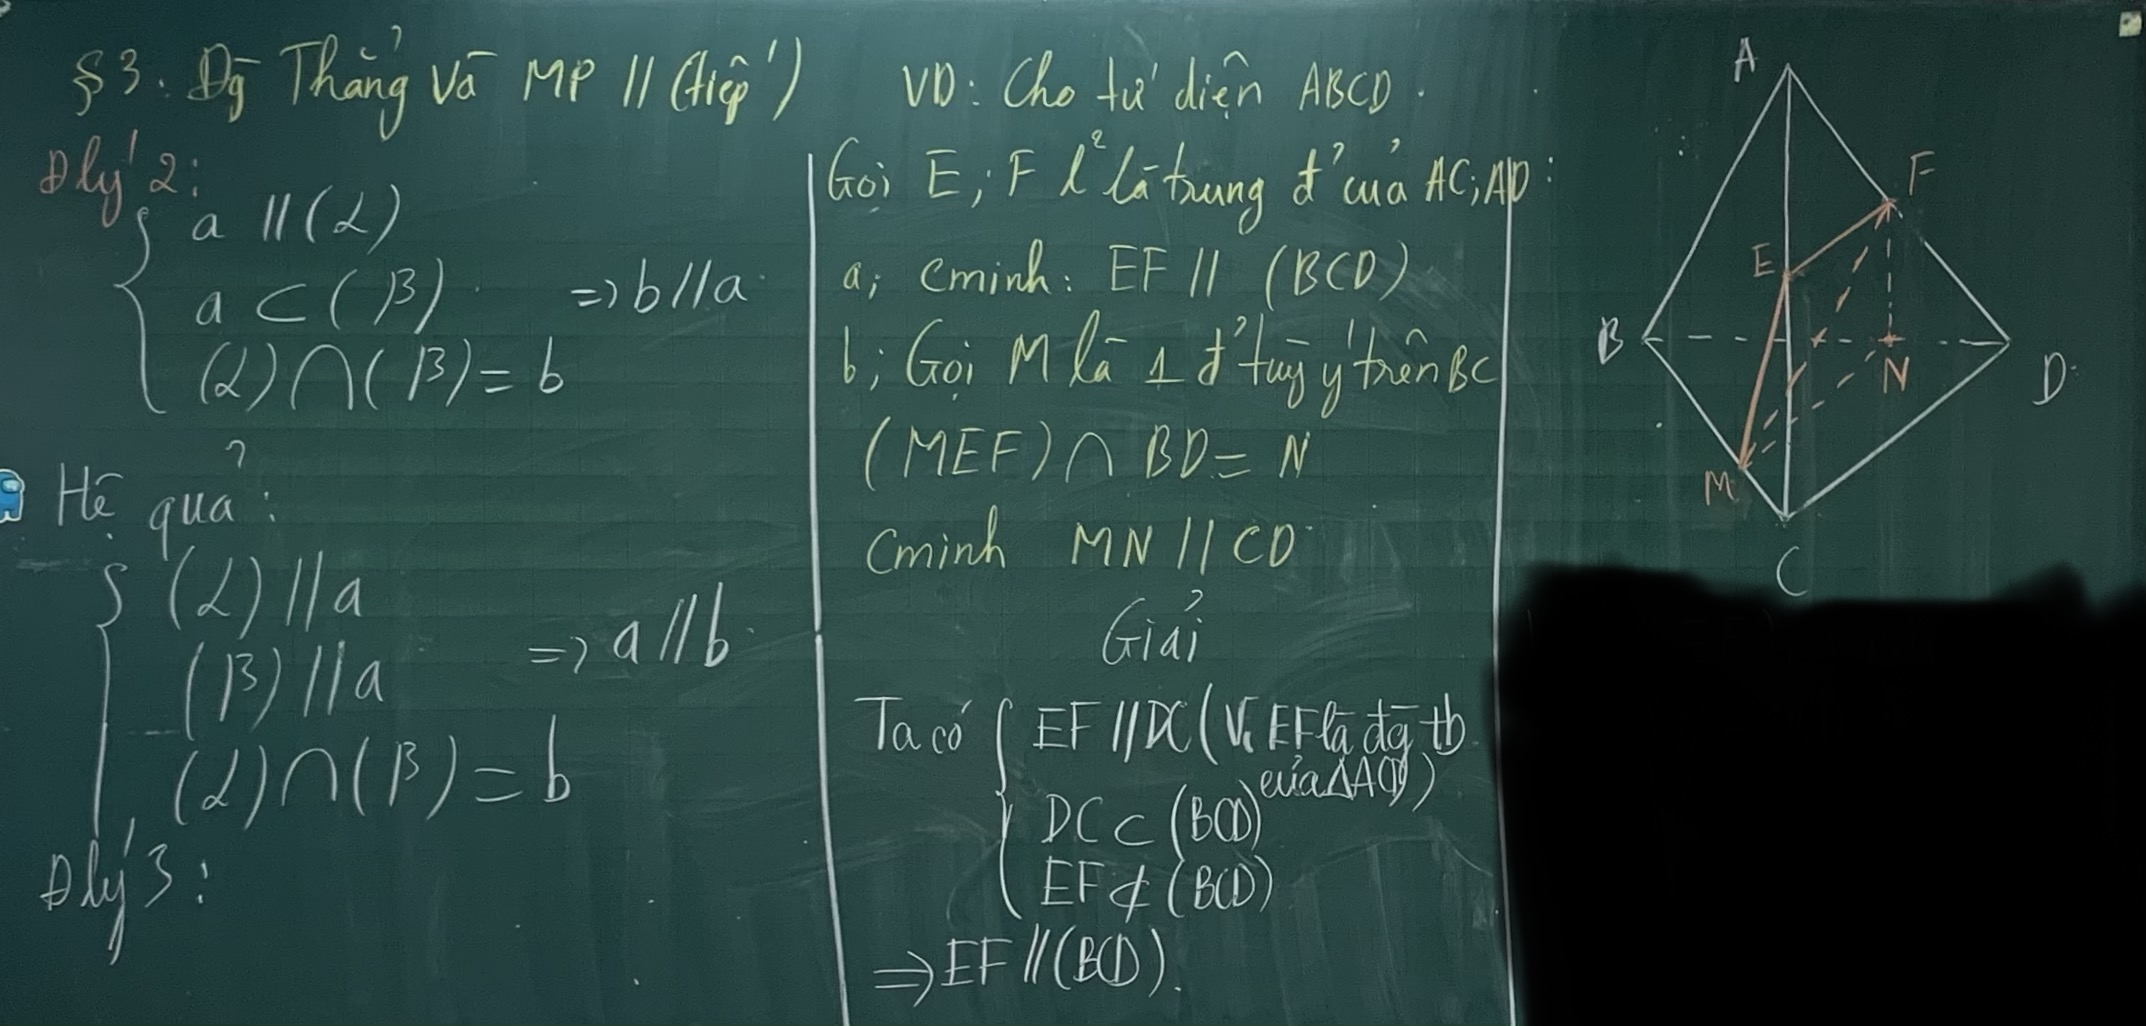 §3. Đg Thẳng Và MP // (tiếp)
Đlý 2:
a // (α)
a ⊂ (β) => b // a
(α) ∩ (β) = b
Hệ quả:
(α) // a
(β) // a => a // b
(α) ∩ (β) = b
Đlý 3:
VD: Cho tứ diện ABCD.
Gọi E; F l² là trung đ' của AC; AD:
a; cminh: EF // (BCD)
b; Gọi M là 1 đ' tùy ý trên BC
(MEF) ∩ BD = N
Cminh MN // CD
Giải
Ta có EF // DC (Vì EF là đg tb
của ΔACD)
DC ⊂ (BCD)
EF ⊄ (BCD)
=> EF // (BCD).
A
F
E
B
N
D
M
C